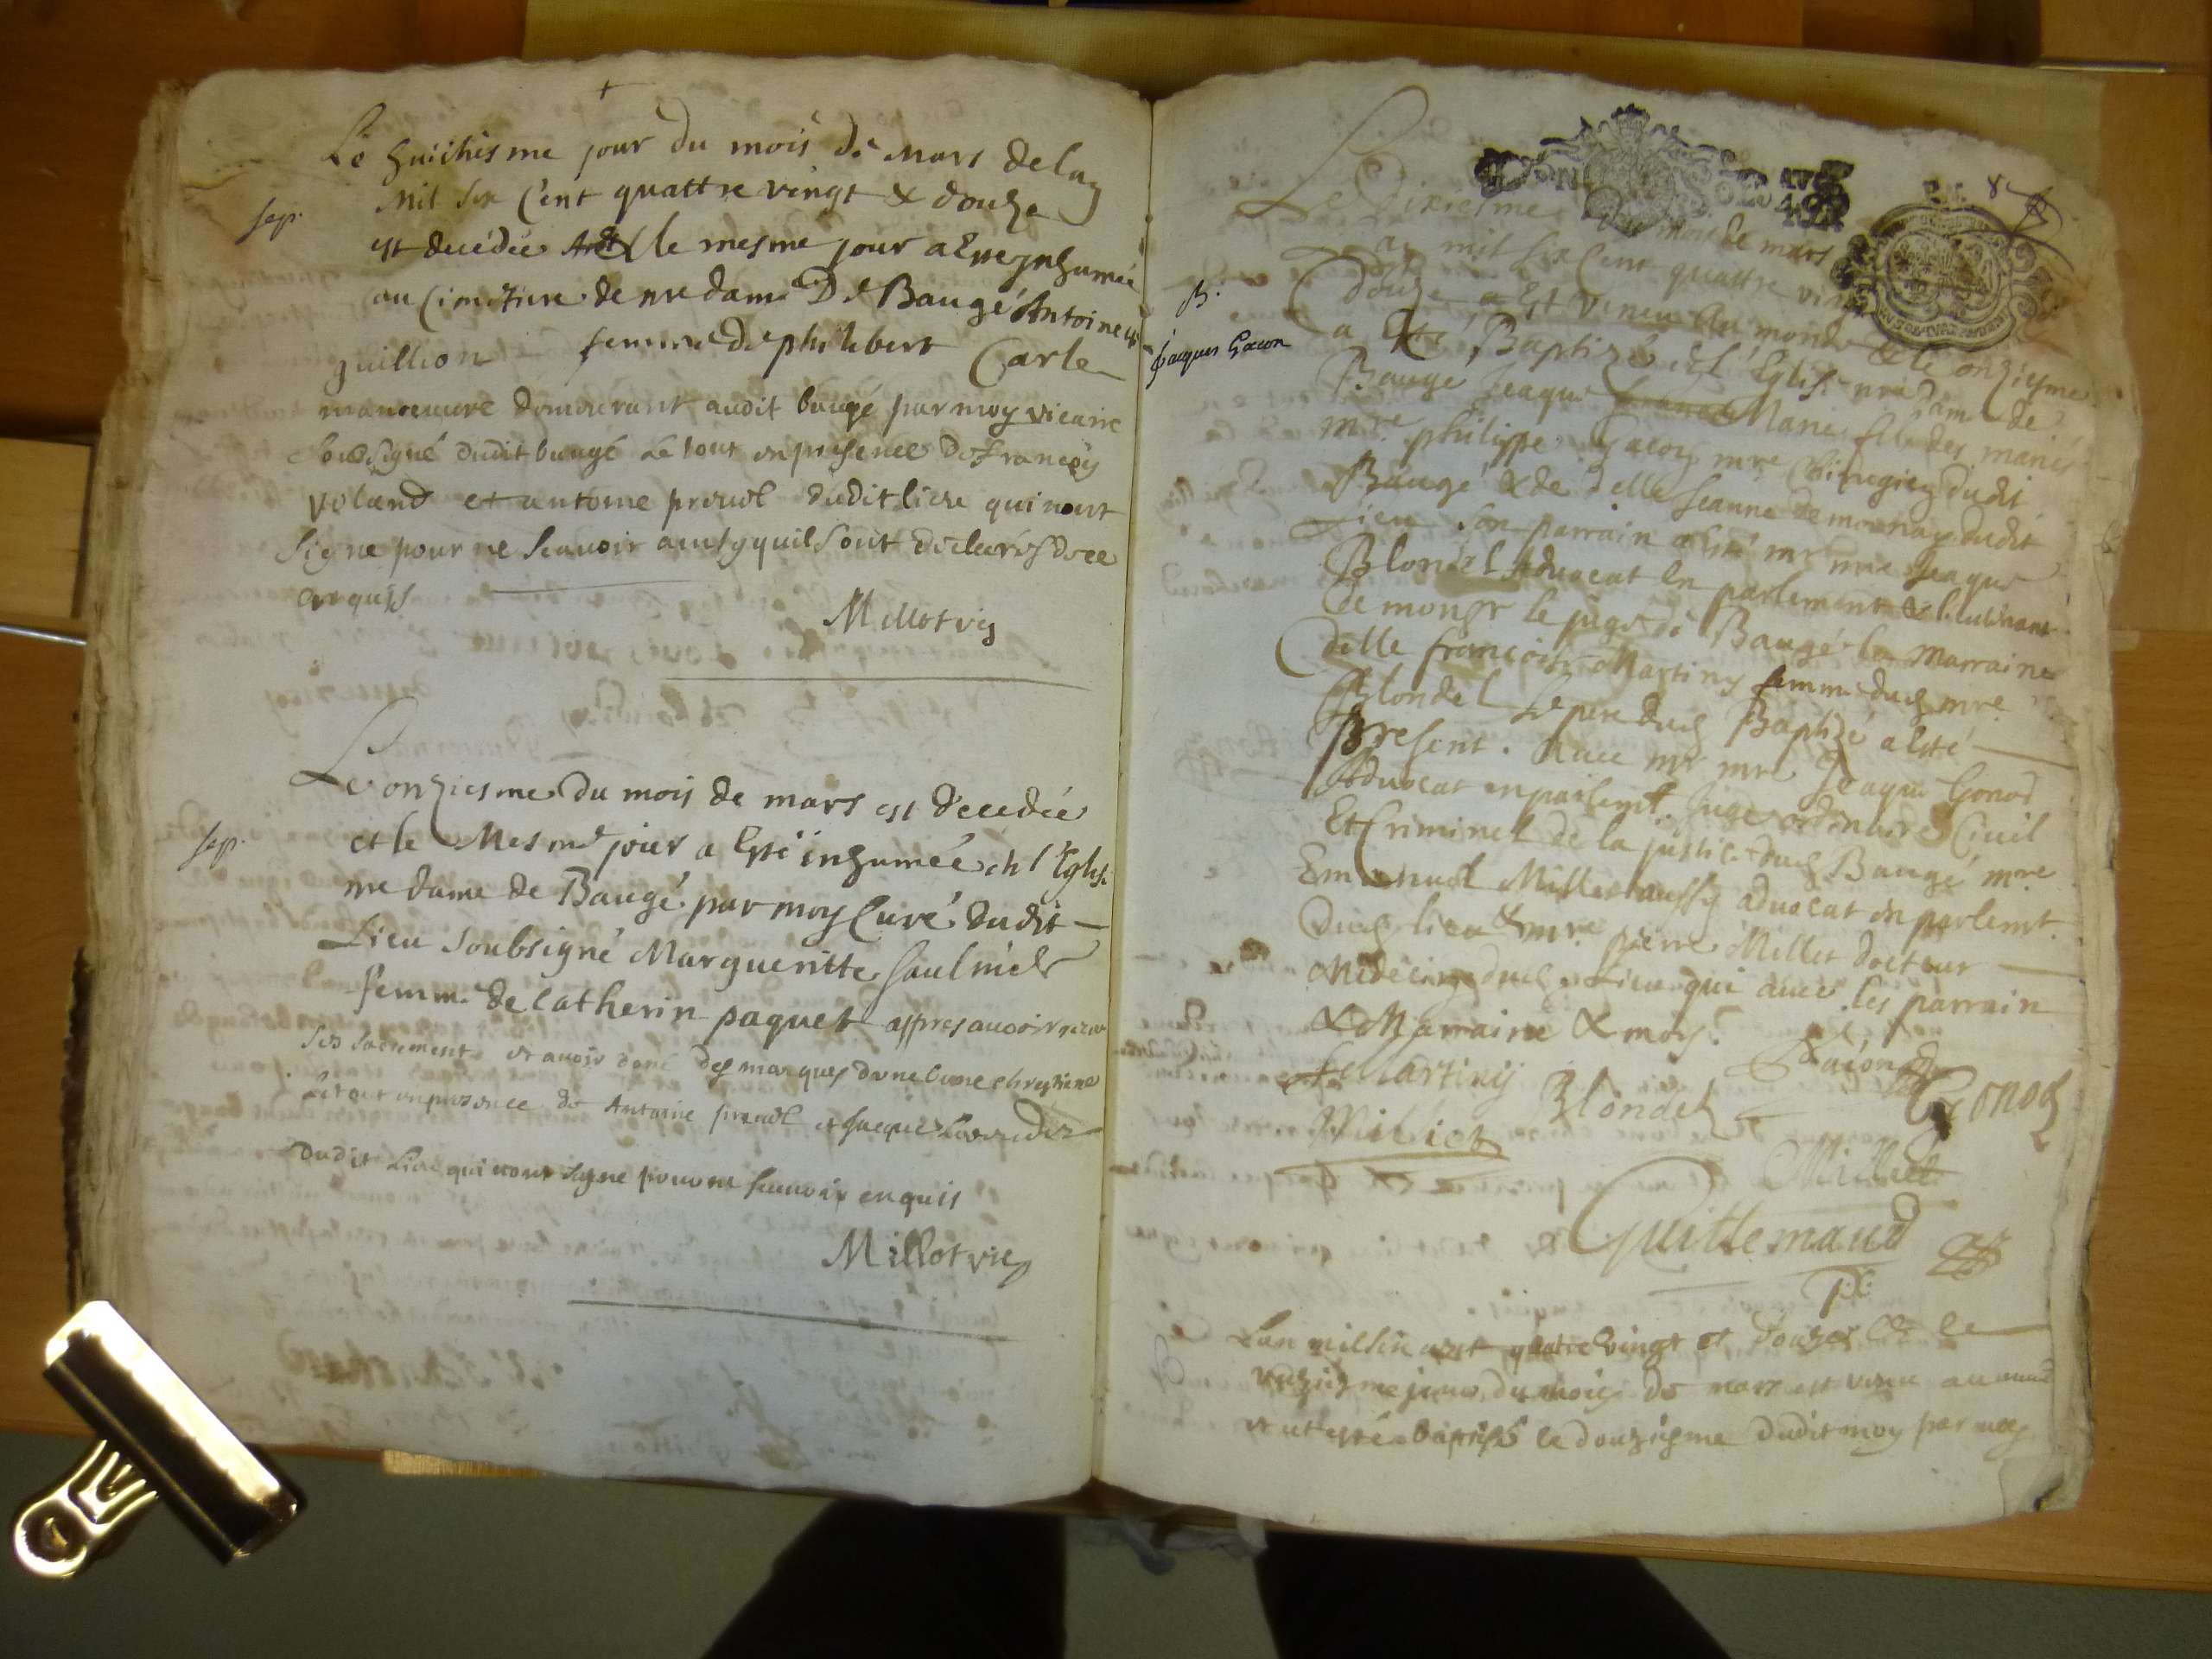 Le huictiesme jour du mois de Mars de lan
Mil Six Cent quattre vingt & douze
sep.
est decédée & le mesme jour a Este jnhumée
au Cimetiere de nre dame De Baugé Antoinette
guillion femme de philibert Carle
manoeuvre demeurant audit baugé par moy vicaire
soubsigné dudit baugé le tout en presence De françoy
voland et antoine prevol dudit lieu qui nont
signe pour ne scavoir ainsy quil sont declares de ce
enquis
Millot vic
Le onziesme Du mois de mars est decedée
sep.
et le Mesme jour a Esté inhumée en l'Eglise
nre dame de Baugé par moy Curé dudit
Lieu Soubsigné Margueritte Saulnier
femme de Catherin paquet appres avoir receu
ses sacrement et avoir doné des marques dune bone chrestiene
Le tout en presence de Antoine prevol et Jacque
dudit Lieu qui nont signe pour ne scavoir enquis
Millot vic
8
Le Dixiesme Du mois de mars
mil six Cent quattre vingt
B.
douze Est Venu Au monde & le onziesme
Jacques Gacon
a Esté Baptizé en l'Eglise nre dame de
Baugé Jeaque Marie fils des mariés
mre philippe Gacon mre Chirugien dudit
Baugé & de delle Jeanne demornay dudit
Lieu Son parrain a esté mr mre Jeaque
Blondel Advocat en parlement & lieutenant
de monsr le juge de Baugé la marraine
delle françoise Martiny femme dud mre
Blondel Le pere dud Baptizé a esté
Present. Avec mr mre Jeaque Gonod
Advocat en parlemt. Juge ordinaire Civil
Et Criminel de la justice dud Baugé mre
Emanuel Millet aussy advocat en parlemt.
Dud lieu & mre pierre Millet docteur
Medecin dud Lieu qui avec les parrain
& Marraine & moy
Gacon
f Martiny
Blondel
Gonod
Milliet
Milliet
Guillemaud
Lan mil six cent quatre vingt et douze & le
unziesme jour du mois de mars est venu au mond
et at esté baptisé le douziesme dudit moy par moy